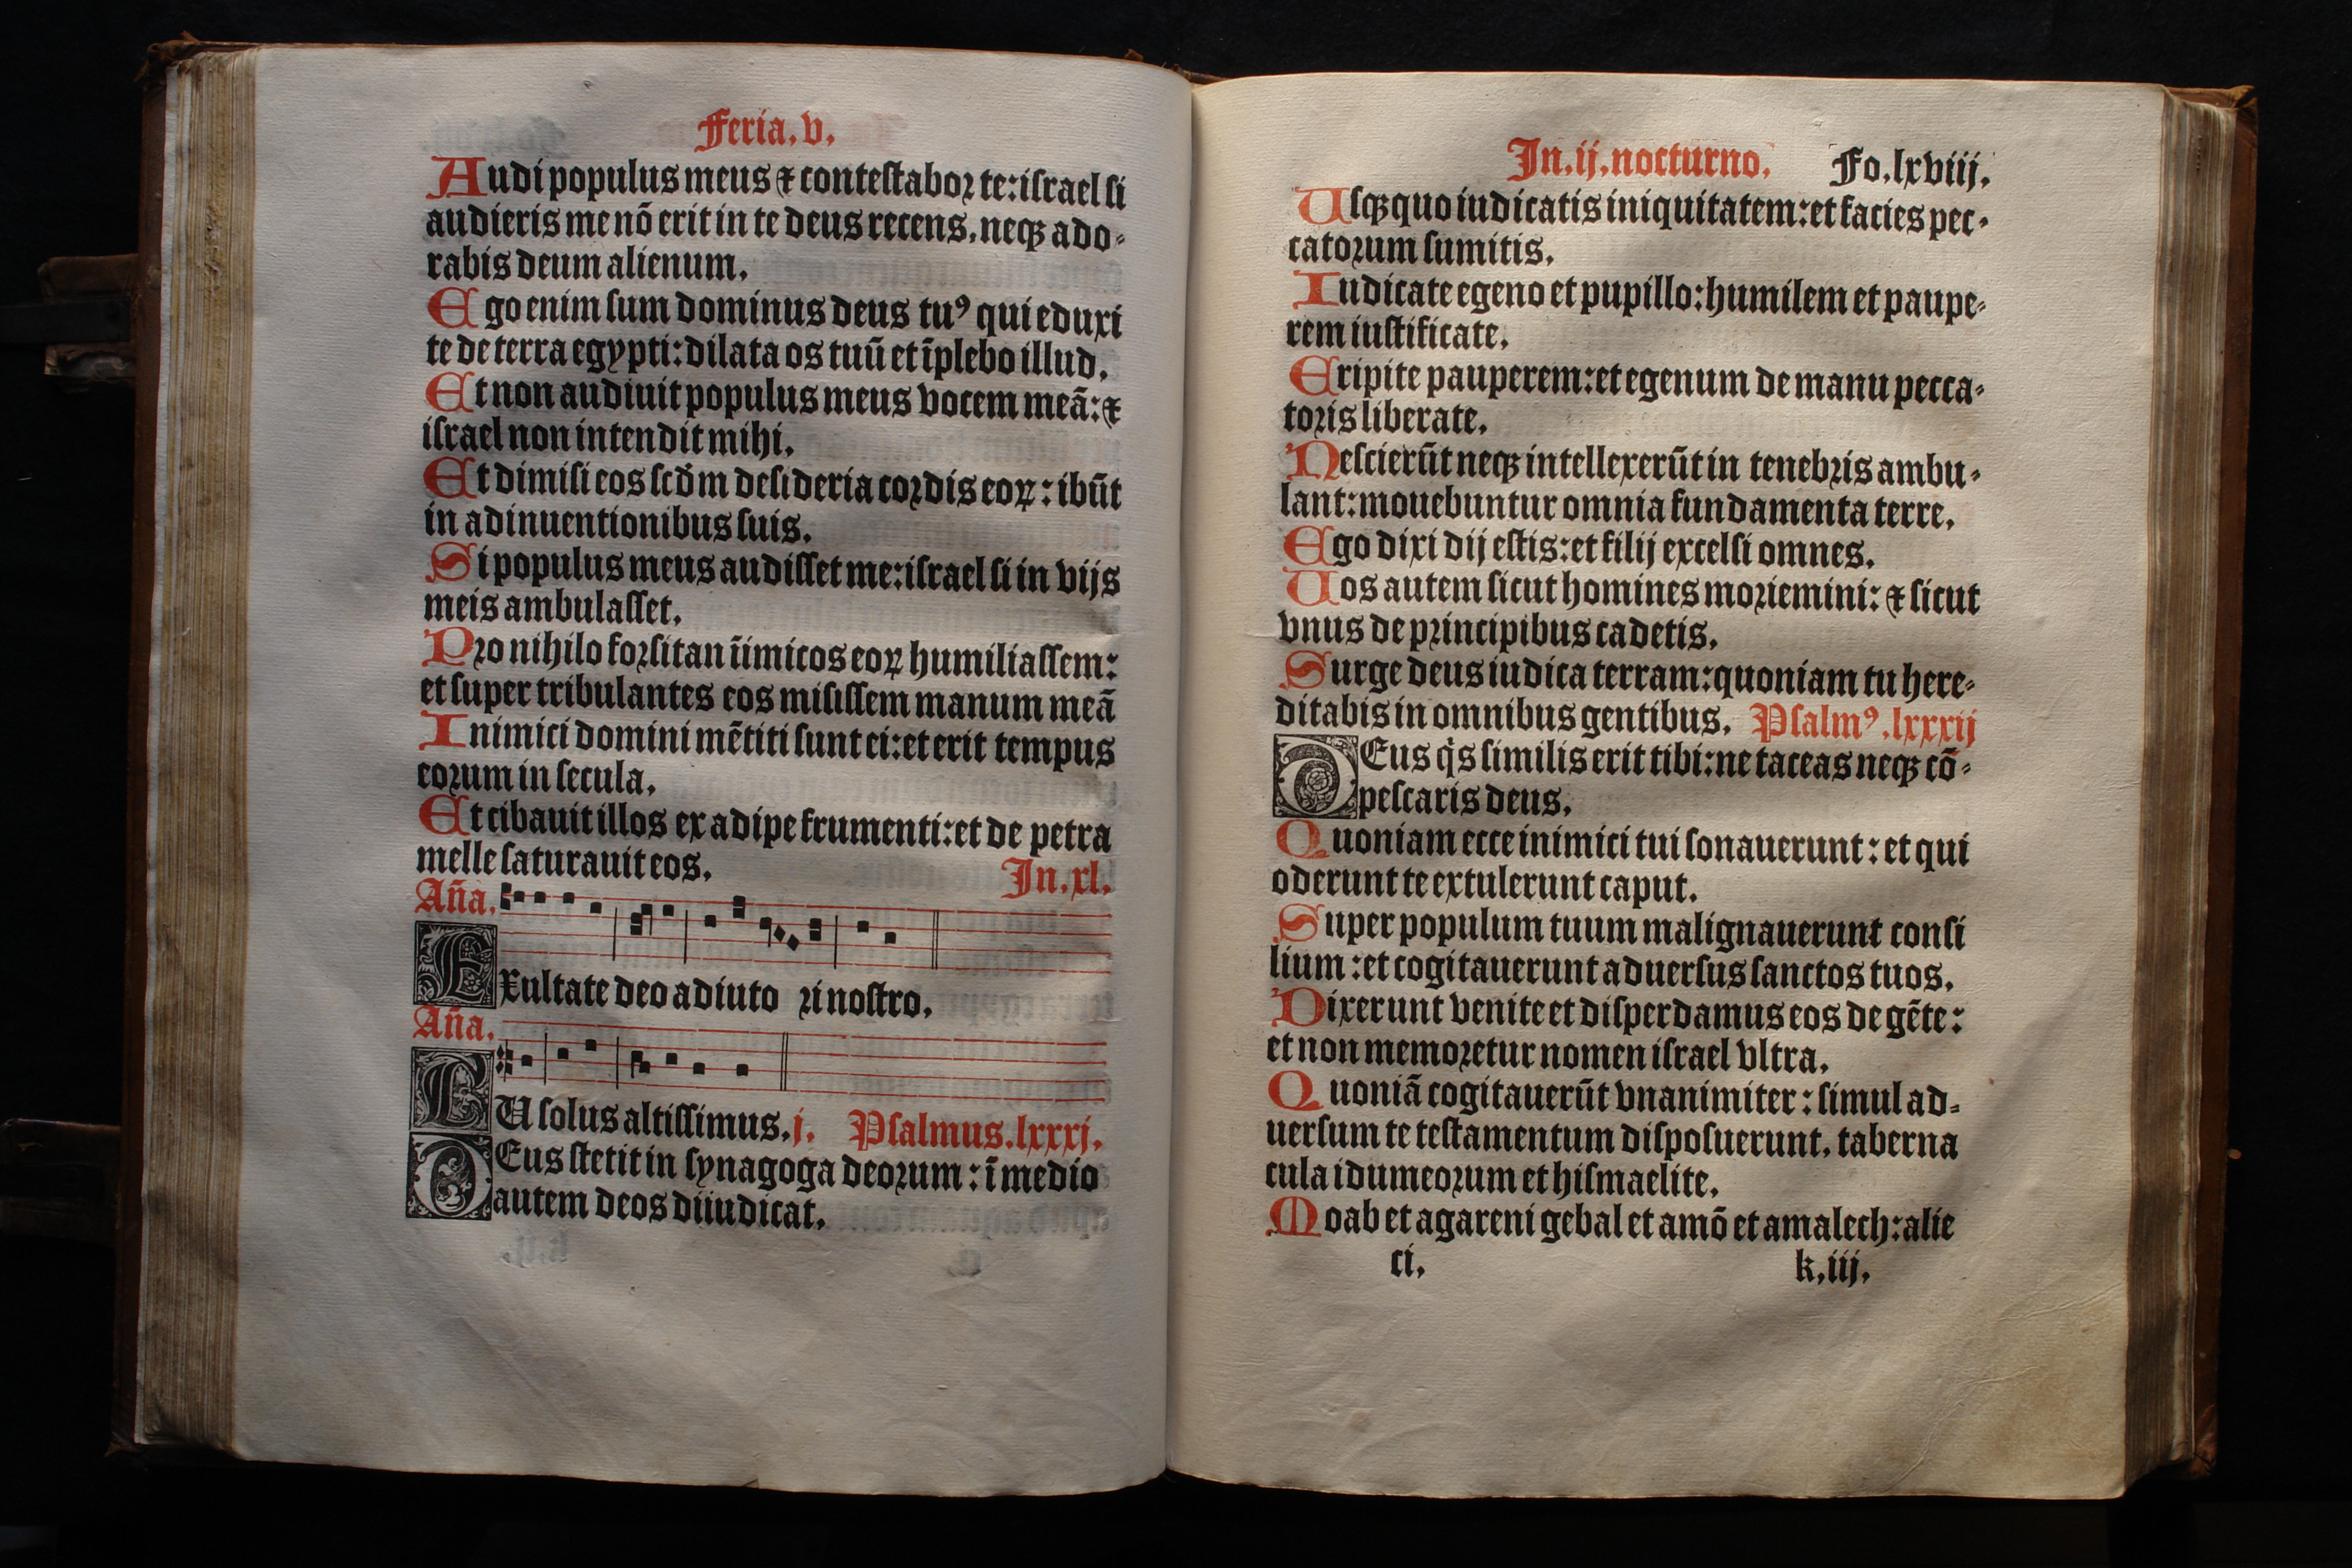 Feria.v.
Audi populus meus ⁊ contestabor te:israel si
audieris me nō erit in te deus recens.neqꝫ ado⸗
rabis deum alienum.
Ego enim sum dominus deus tuꝰ qui eduxi
te de terra egypti:dilata os tuū et īplebo illud.
Et non audiuit populus meus vocem meā:⁊
israel non intendit mihi.
Et dimisi eos scd̄m desideria cordis eoꝝ:ibūt
in adinuentionibus suis.
Si populus meus audisset me:israel si in vijs
meis ambulasset.
Pro nihilo forsitan īimicos eoꝝ humiliassem:
et super tribulantes eos misissem manum meā
Inimici domini mētiti sunt ei:et erit tempus
eorum in secula.
Et cibauit illos ex adipe frumenti:et de petra
melle saturauit eos. In.xl.
Añа.
Exultate deo adiuto ri nostro.
Añа.
TU solus altissimus.j. Psalmus.lxxxj.
DEus stetit in synagoga deorum:ī medio
autem deos dijudicat.
In.ij.nocturno. Fo.lxviij.
Usqꝫquo iudicatis iniquitatem:et facies pec⸗
catorum sumitis.
Iudicate egeno et pupillo:humilem et paupe⸗
rem iustificate.
Eripite pauperem:et egenum de manu pecca⸗
toris liberate.
Nescierūt neqꝫ intellexerūt in tenebris ambu⸗
lant:mouebuntur omnia fundamenta terre.
Ego dixi dij estis:et filij excelsi omnes.
Uos autem sicut homines moriemini:⁊ sicut
vnus de principibus cadetis.
Surge deus iudica terram:quoniam tu here⸗
ditabis in omnibus gentibus. Psalmꝰ.lxxxij
DEus q̇s similis erit tibi:ne taceas neqꝫ cō⸗
pescaris deus.
Quoniam ecce inimici tui sonauerunt:et qui
oderunt te extulerunt caput.
Super populum tuum malignauerunt consi
lium:et cogitauerunt aduersus sanctos tuos.
Dixerunt venite et disperdamus eos de gēte:
et non memoretur nomen israel vltra.
Quoniā cogitauerūt vnanimiter:simul ad⸗
uersum te testamentum disposuerunt.taberna
cula idumeorum et hismaelite.
Moab et agareni gebal et amō et amalech:alie
ci. k.iij.